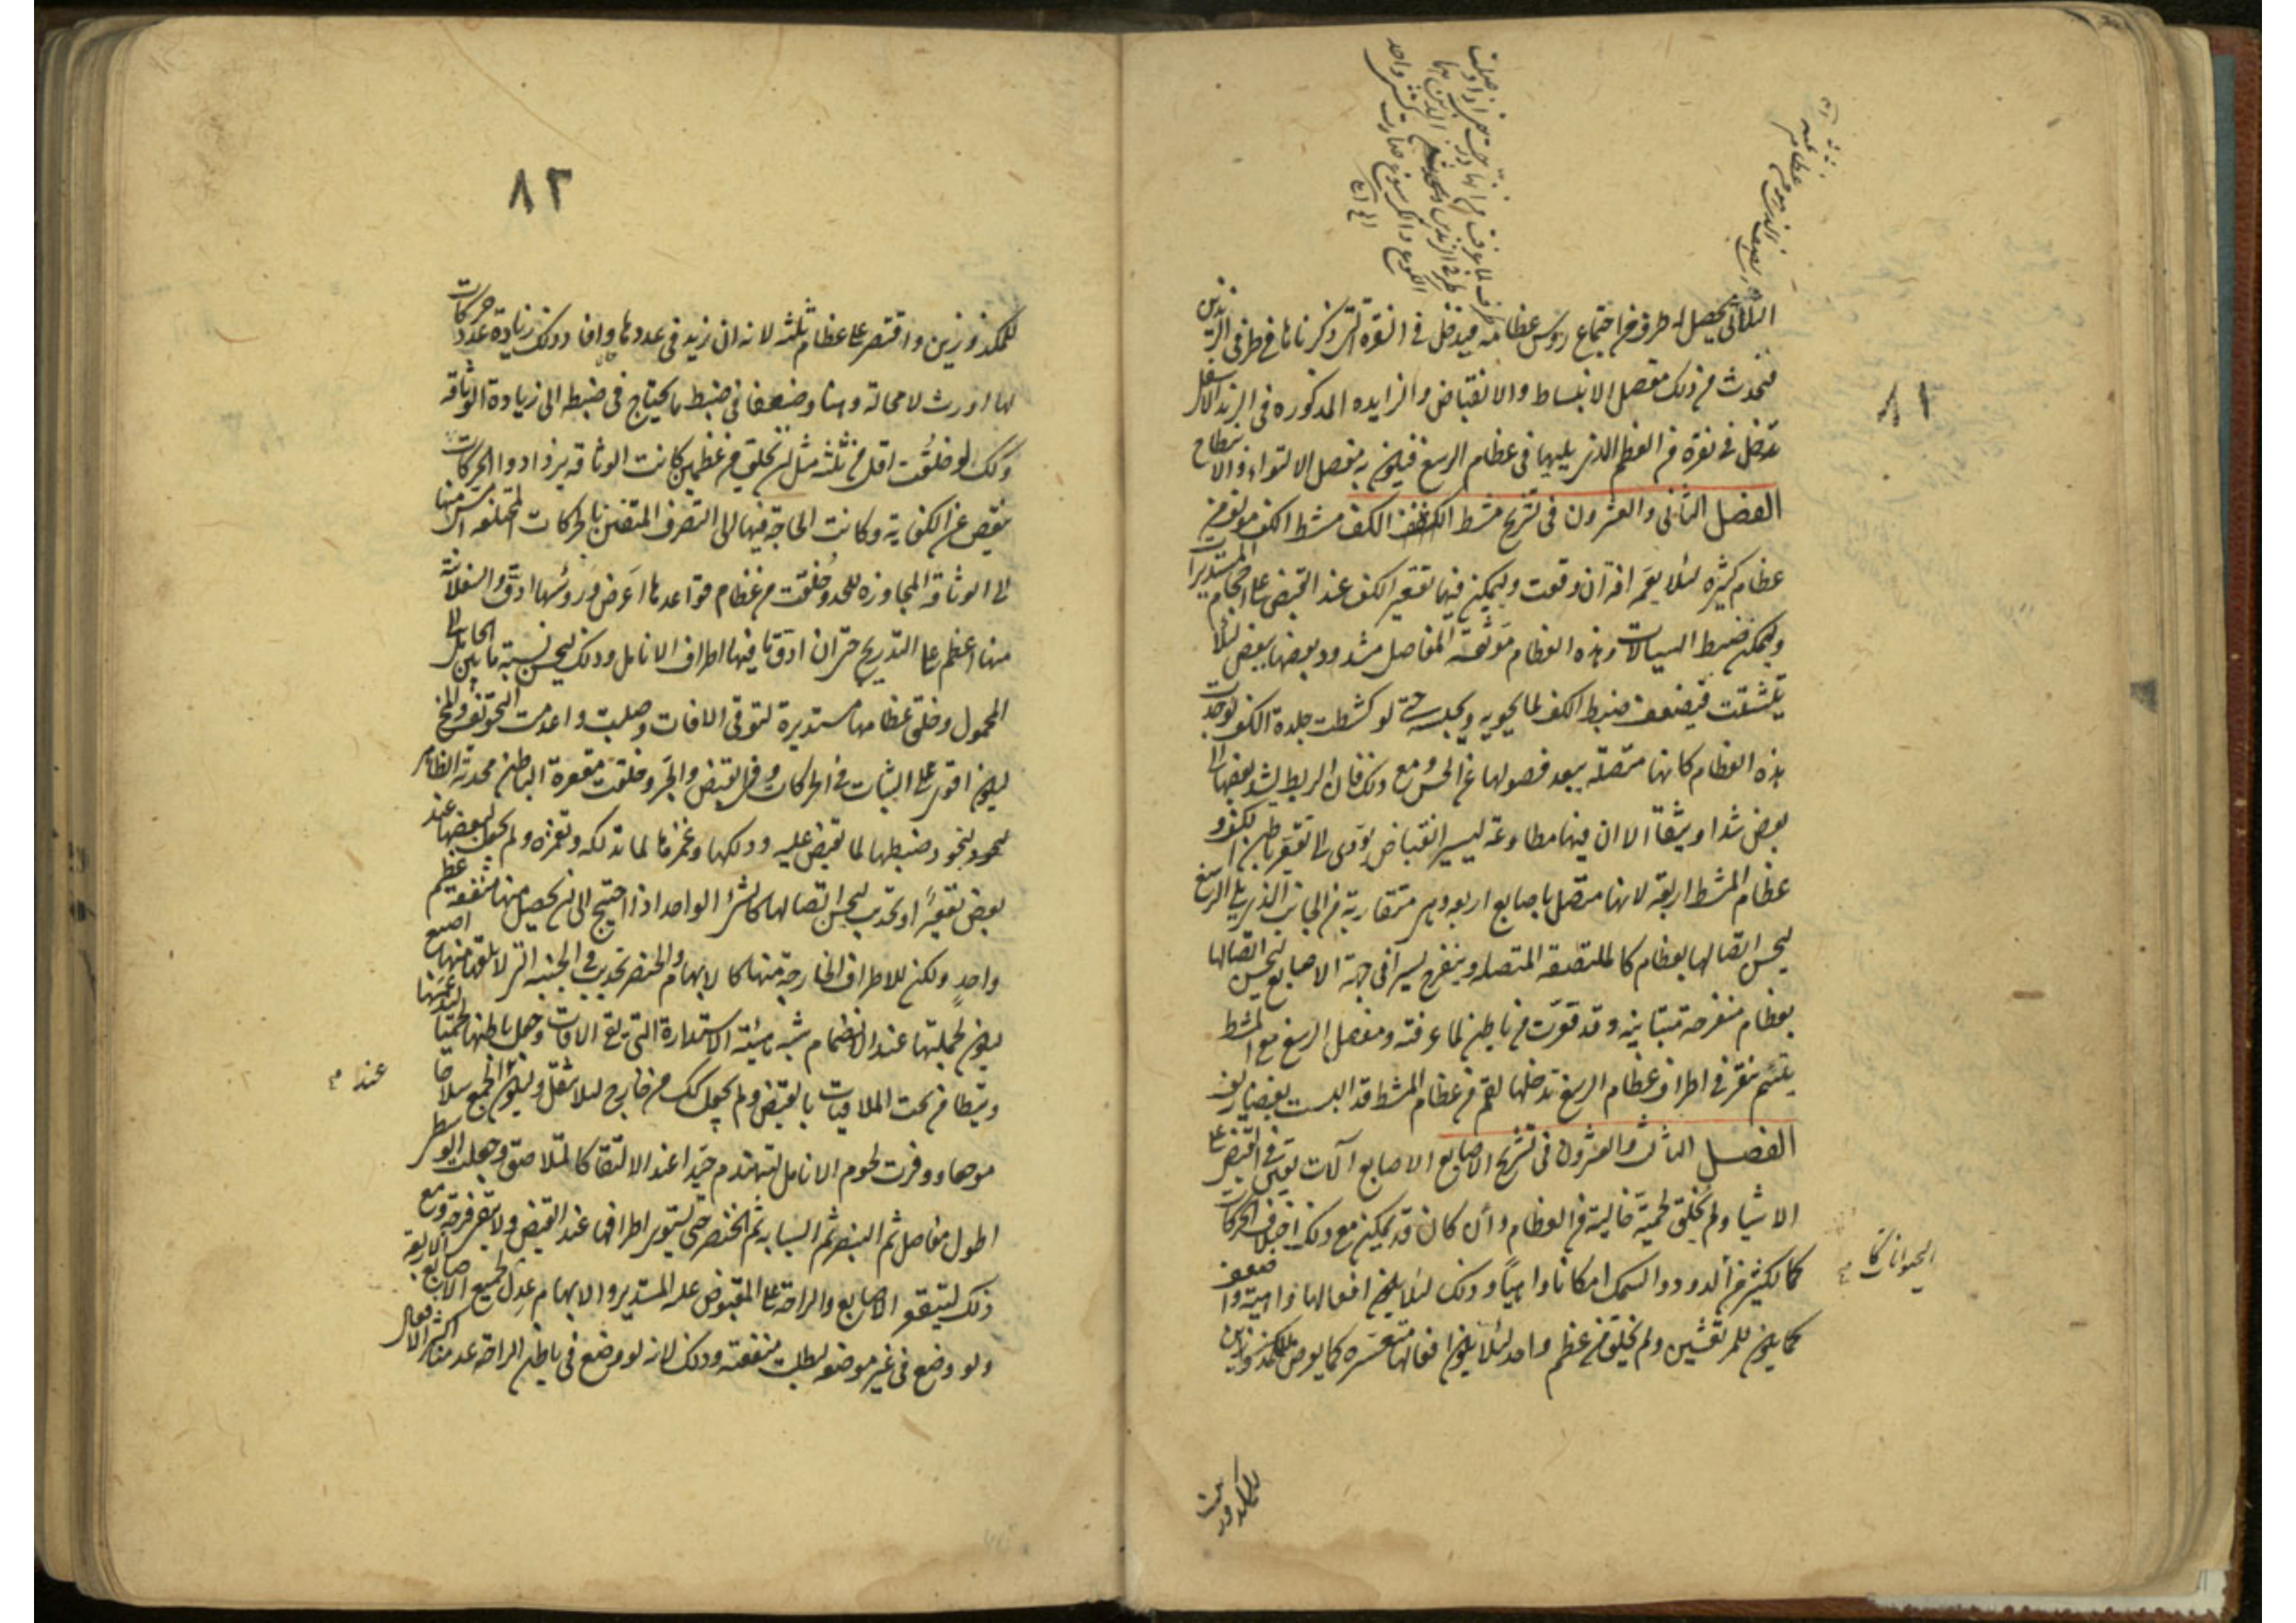 ٨١
الثاني يحصل له طرف من اجتماع رؤس عظامه فيدخل في النقرة التى ذكرناها في طرفى الزندين
فتحدث من ذلك مفصل الانبساط والانقباض والزايده المذكوره في الزند الاسفل
تدخل في نقرة من العظم الذى يليها في عظام الرسغ فيكون به مفصل الالتواء والانبطاح
الفصل الثانى والعشرون في تشريح مشط الكف مشط الكف مولف من
عظام كثيره لئلا يعمه افة ان وقعت وليمكن فيها تقعير الكف عند القبض على احجام المستديرات
وليمكن ضبط السيالات وهذه العظام موثقة المفاصل مشدود بعضها ببعض لئلا
يتشتت فيضعف ضبط الكف لما يحويه ويحبسه حتى لو كشطت جلدة الكف لوجدت
هذه العظام كانها متصلة يبعد فصولها عن الحس ومع ذلك فان الربط يشد بعضها الى
بعض شدا وثيقا الا ان فيها مطاوعة ليسير انقباض يؤدى الى تقعير باطن الكف و
عظام المشط اربعة لانها متصل باصابع اربعة وهى متقاربة من الجانب الذى يلى الرسغ
ليحسن اتصالها بعظام كالملتصقة المتصله وينفرج يسيرا في جهة الاصابع ليحسن اتصالها
بعظام منفرجه متباينه وقد قعرت من باطن لما عرفته ومفصل الرسغ مع المشط
يلتئم بنقر في اطراف عظام الرسغ تدخلها لقم من عظام المشط قد البست بغضاريف
الفصل الثالث والعشرون في تشريح الاصابع الاصابع آلات تعين في القبض على
الاشيا ولم يخلق لحمية خالية من العظام وان كان قد يمكن مع ذلك اختلاف الحركات
كما لكثير من الدود والسمك امكانا واهيا وذلك لئلا يكون افعالها واهية واضعف
الحيوانات كا
كما يكون للمرتعشين ولم يخلق من عظم واحد لئلا يكون افعالها متعسره كما يعرض للمكزوزين
٨٢
للمكزوزين واقتصر على عظام ثلثه لانه ان زيد في عددها وافاد ذلك زيادة عدد حركات
لها اورث لا محالة وهنا وضعفا في ضبط ما يحتاج في ضبطه الى زيادة الوثاقة
وكك لو خلقت اقل من ثلثه مثل ان يخلق من عظمين كانت الوثاقه يزداد والحركات
ينقص عن الكفاية وكانت الحاجة فيها الى التصرف المتفنن بالحركات المختلفه امس منها
الى الوثاقة المجاوزه للحد وخلقت من عظام قواعدها اعرض ورؤسها ادق والسفلانية
منها اعظم على التدريج حتى ان ادق ما فيها اطراف الانامل وذلك ليحسن نسبة ما بين الحامل الى
المحمول وخلق عظامها مستديرة لتوقى الافات وصلبت واعدمت التجويف والمخ
ليكون اقوى على الثبات في الحركات وفي القبض والجر وخلقت مقعرة الباطن محدبة الظاهر
ليجود ضبطها لما تقبض عليه ودلكها وغمزها لما تدلكه وتغمزه ولم يجعل لبعضها عند
بعض تقعير او تحديب ليحسن اتصالها كالشئ الواحد اذا احتيج الى ان يحصل منها منفعة عظيم
واحد ولكن للاطراف الخارجة منها كالابهام والخنصر تحديب في الجنبه التى لا يلقها منها اصبع
ليكون لجملتها عند الانضمام شبه هيئة الاستدارة التى تقى الافات وجعل باطنها لحميا ليدعمها
وتتطامن تحت الملاقيات بالقبض ولم يجعل كك من خارج لئلا تثقل وليكون الجميع سلاحا
عند
موجعا ووفرت لحوم الانامل لتهندم جيدا عند الالتقا كالمتلاصق وجعلت الوسطى
اطول مفاصل ثم البنصر ثم السبابه ثم الخنصر حتى تستوى اطرافها عند القبض ولا يبقى فرجة ومع
ذلك لتتقعر الاصابع والراحة على المقبوض عليه المستدير والابهام عدل لجميع الاصابع الاربعة
ولو وضع في غير موضعه لبطلت منفعته وذلك لانه لو وضع في باطن الراحة عدمنا اكثر الافعال